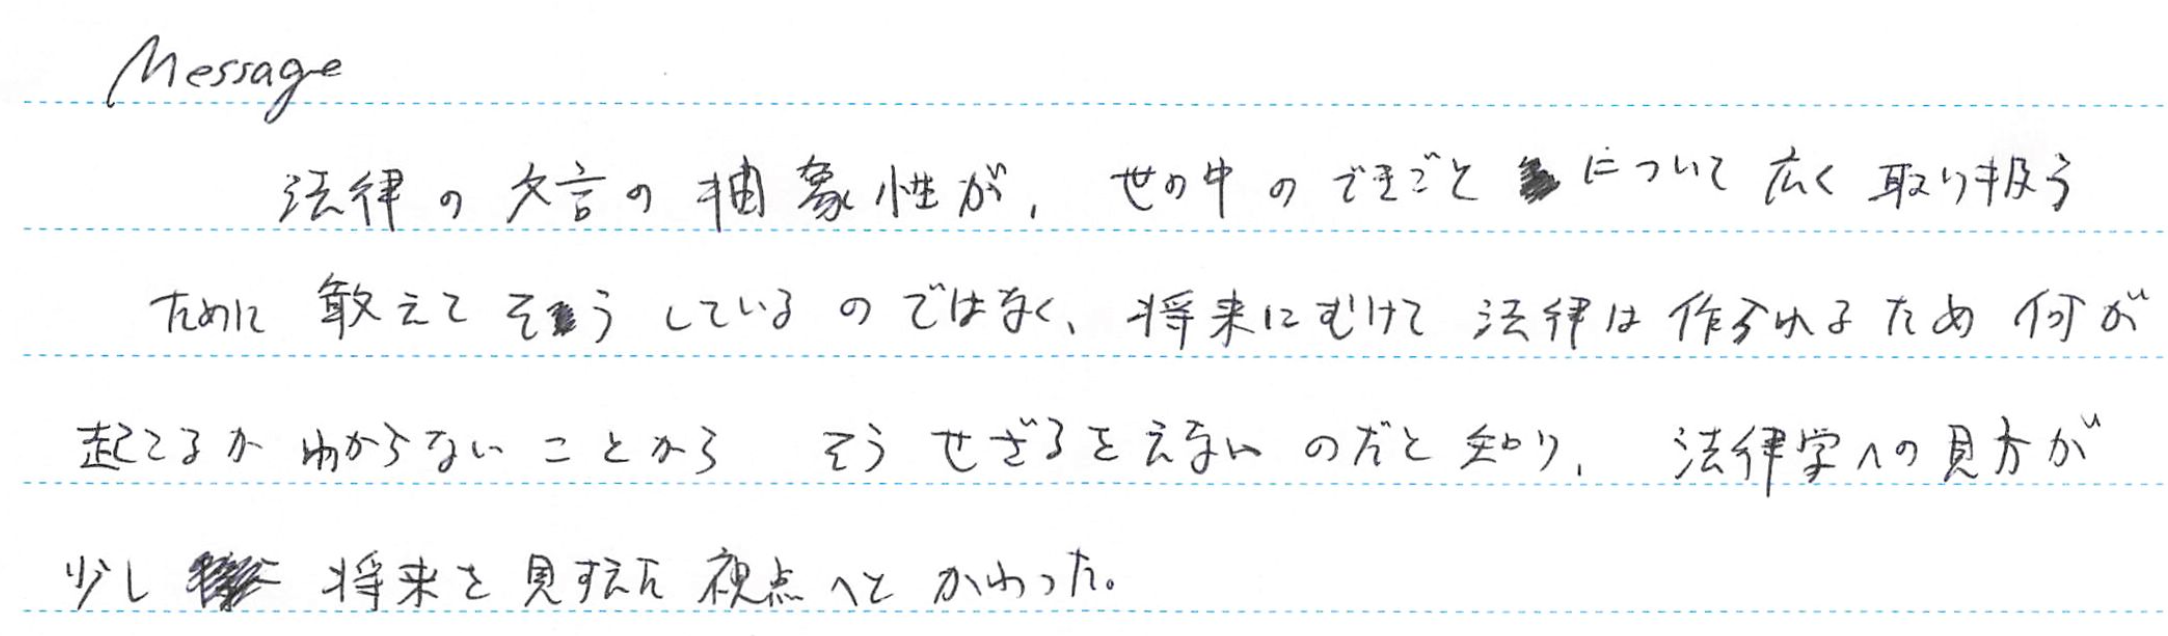 Message
法律の文言の抽象性が、世の中のできごとについて広く取り扱う
ために敢えてそうしているのではなく、将来にむけて法律は作られるため何が
起こるかわからないことからそうせざるをえないのだと知り、法律学への見方が
少し将来を見すえた視点へとかわった。